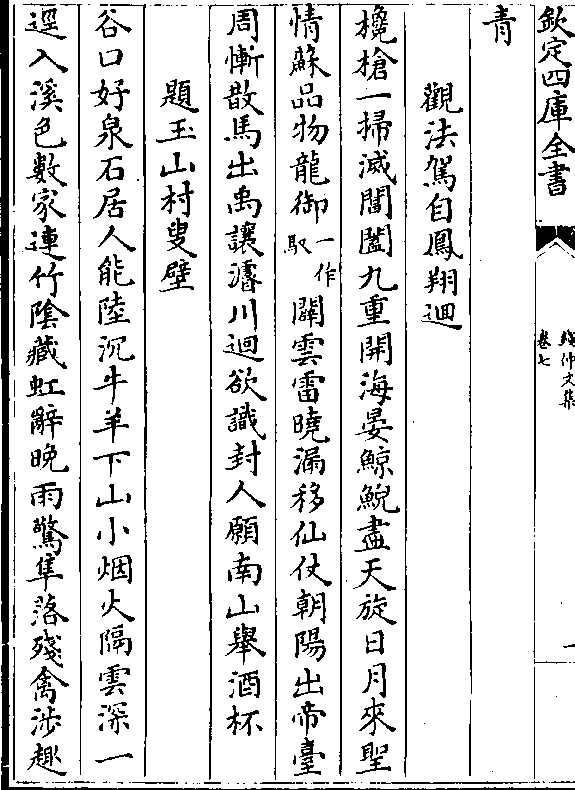 欽定四庫全書
錢仲文集
卷七
青
觀法駕自鳳翔迴
欃槍一掃滅閶闔九重開海晏鯨鯢盡天旋日月來聖
情蘇品物龍御一作馭闢雲雷曉漏移仙仗朝陽出帝臺
周慚散馬出禹讓濬川迴欲識封人願南山舉酒杯
題玉山村叟壁
谷口好泉石居人能陸沉牛羊下山小烟火隔雲深一
逕入溪色數家連竹陰藏虹辭晚雨驚隼落殘禽涉趣